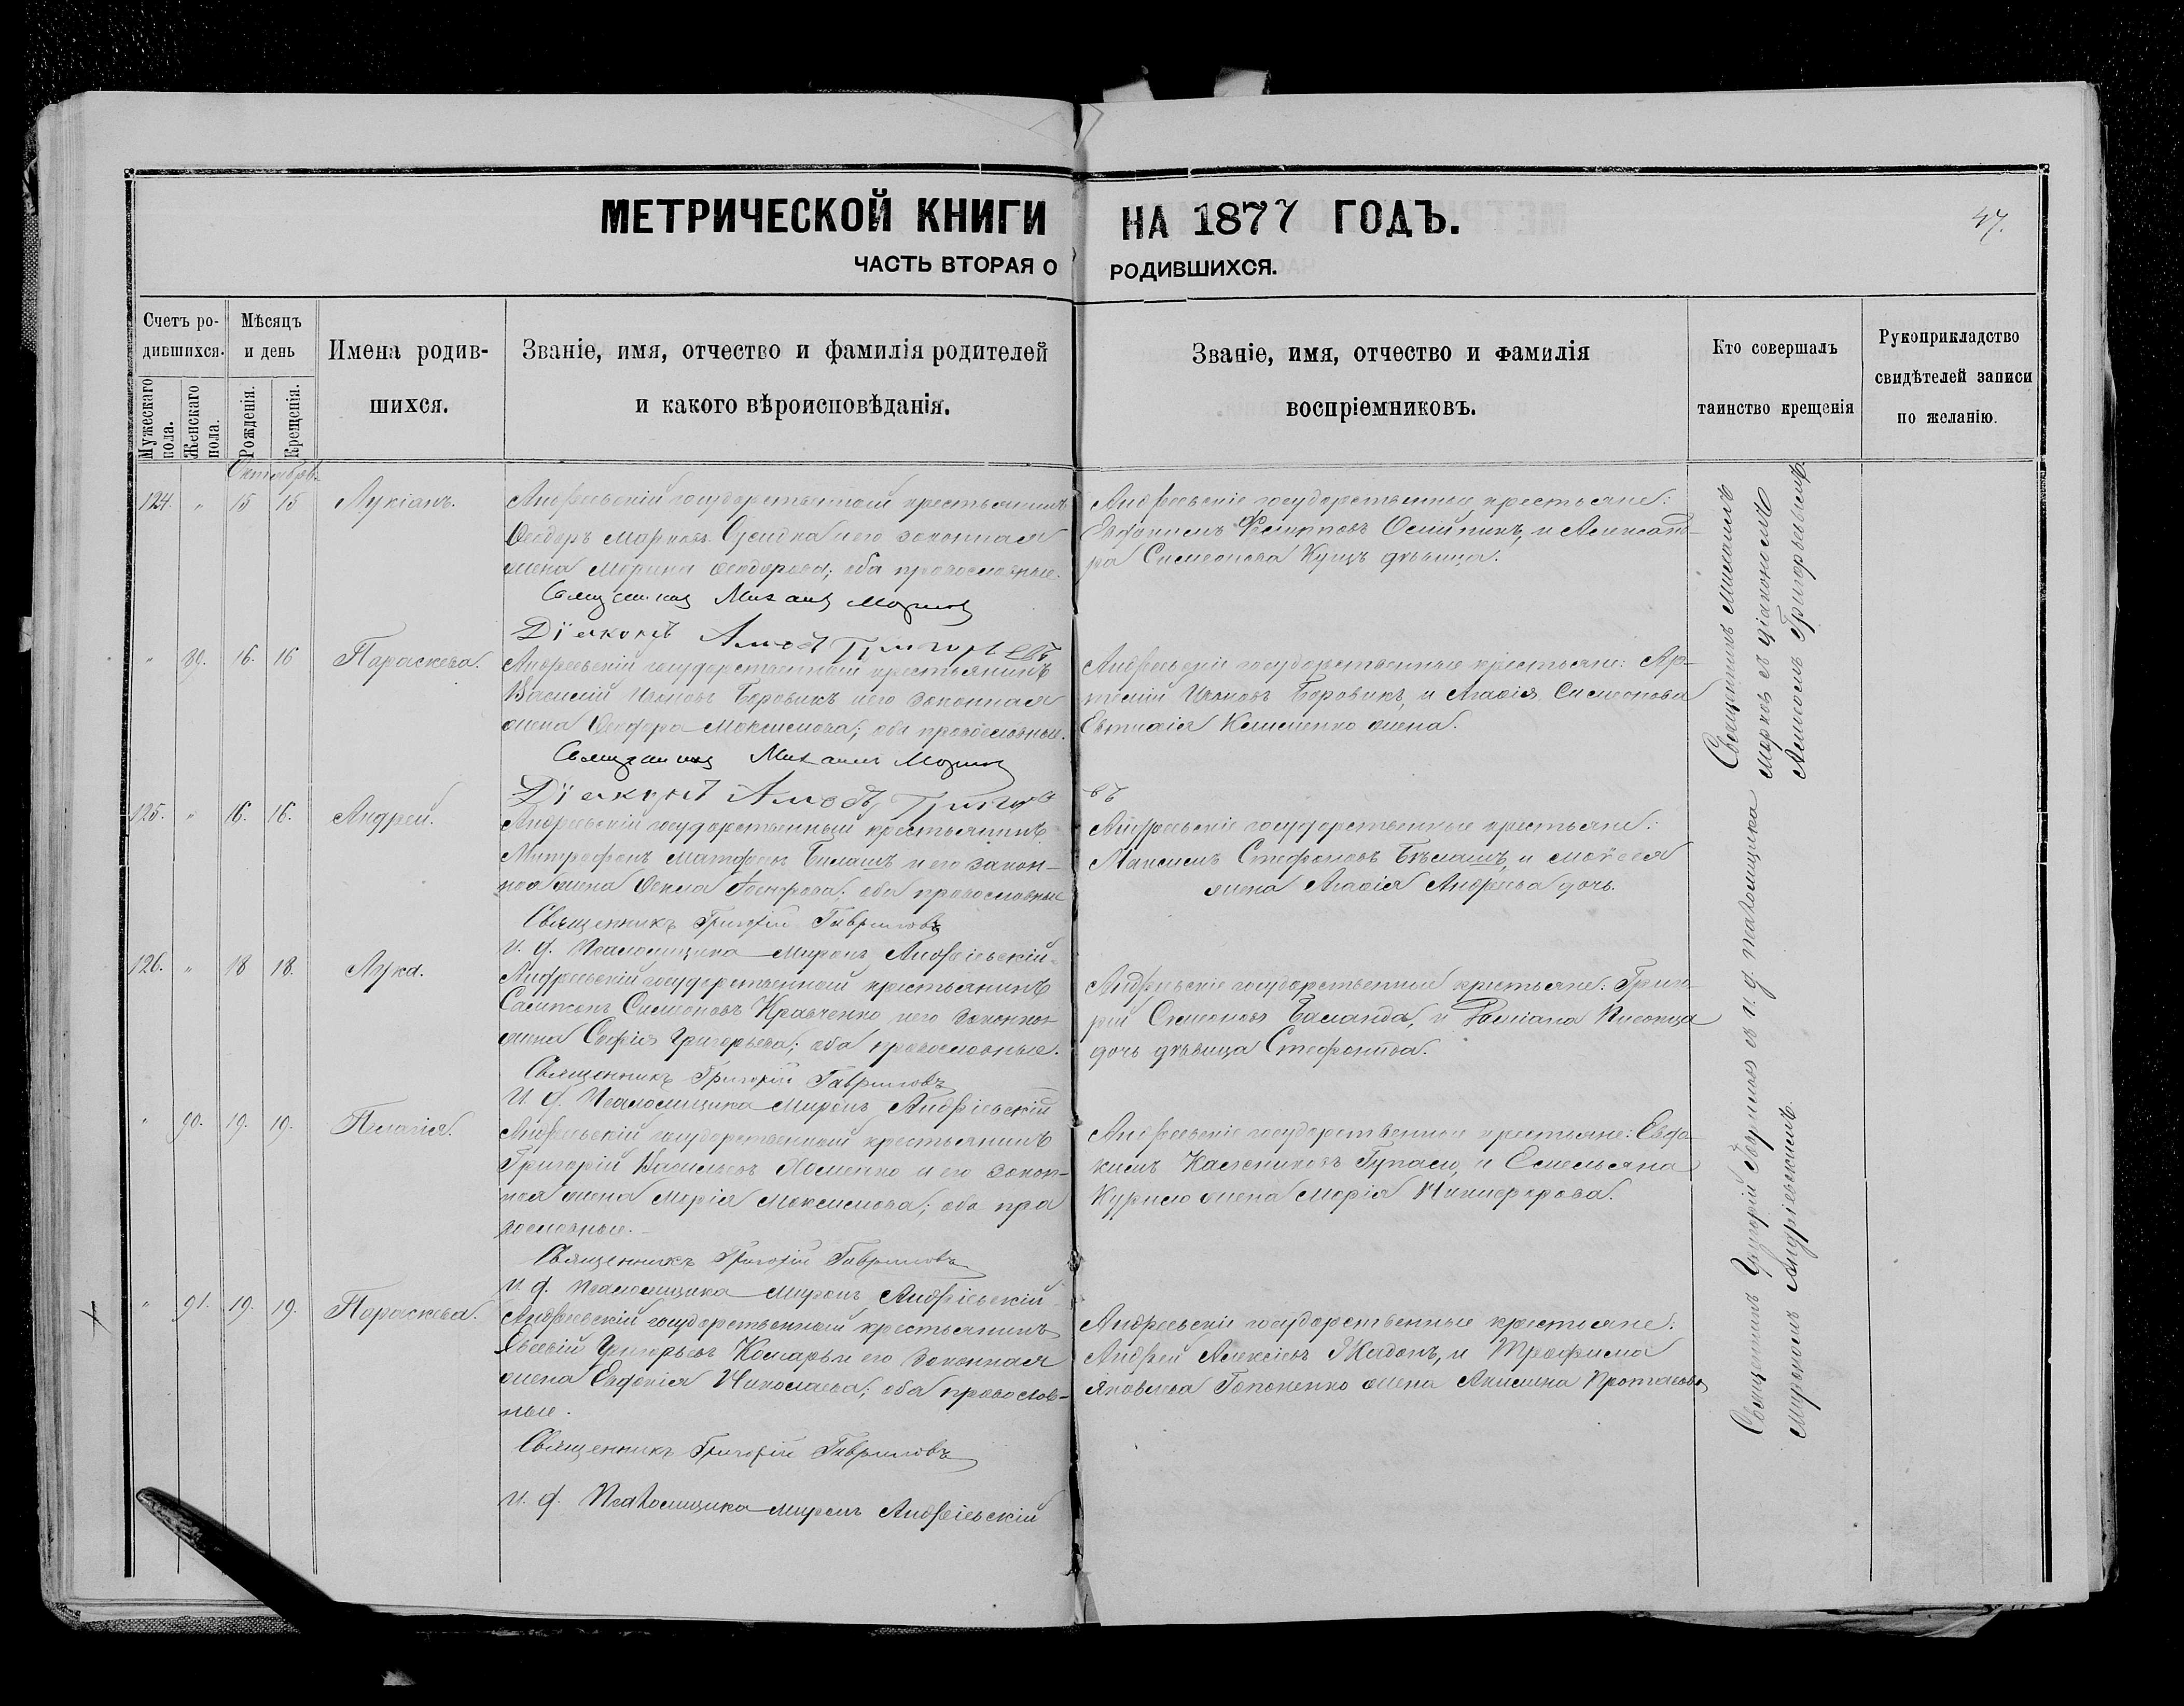 МЕТРИЧЕСКОЙ КНИГИ НА 1877 ГОДЪ.
47.
ЧАСТЬ ВТОРАЯ О РОДИВШИХСЯ.
Счетъ ро-
дившихся.
Мужескаго пола.
Женскаго пола.
Мѣсяцъ
и день
Рожденія.
Крещенія.
Имена родив-
шихся.
Званіе, имя, отчество и фамилія родителей
и какого вѣроисповѣданія.
Званіе, имя, отчество и фамилія
воспріемниковъ.
Кто совершалъ
таинство крещенія
Рукоприкладство
свидѣтелей записи
по желанію.
Октябрь
124. " 15 15 Лукіанъ.
Андреевскій государственный крестьянинъ
Ѳеодоръ Марковъ и его законная
жена Марина Ѳеодорова; оба православные.
Священникъ Михаилъ
Діаконъ Амосъ Григорьевъ
Андреевскіе государственные крестьяне:
и Александ-
ра Симеонова Куцъ дѣвица.
" 89. 16. 16 Параскева.
Андреевскій государственный крестьянинъ
Василій Ивановъ Боровикъ и его законная
жена Ѳеодора Максимова; оба православные.
Священникъ Михаилъ
Діаконъ Амосъ Григорьевъ
Андреевскіе государственные крестьяне: Ар-
темій Ивановъ Боровикъ, и Агафія Симеонова
жена.
125. " 16. 16. Андрей.
Андреевскій государственный крестьянинъ
Митрофанъ Билашъ и его закон-
ная жена Ѳекла оба православные
Священникъ Григорій Гавриловъ
И. д. Псаломщика Миронъ Андріевскій.
Андреевскіе государственные крестьяне:
Максимъ Стефановъ Бѣлашъ, и Моѵсея
жена Агафія Андреева дочь.
126. " 18 18. Лука.
Андреевскій государственный крестьянинъ
Сампсонъ Симеоновъ Кравченко и его законная
жена Софія Григорьева; оба православные.
Священникъ Григорій Гавриловъ
И. д. Псаломщика Миронъ Андріевскій
Андреевскіе государственные крестьяне: Григо-
рій Симеоновъ Баланда, и
дочь дѣвица Стефанида.
" 90. 19. 19. Пелагія.
Андреевскій государственный крестьянинъ
Григорій Васильевъ Хоменко и его закон-
ная жена Марія Максимова; оба пра
вославные.
Священникъ Григорій Гавриловъ
И. д. Псаломщика Миронъ Андріевскій
Андреевскіе государственные крестьяне: Евдо-
кимъ Каленниковъ Гупало, и Емельяна
Курило жена Марія Никифорова.
" 91. 19. 19. Параскева.
Андреевскій государственный крестьянинъ
Евсевій Григорьевъ Комарь и его законная
жена Евдокія Николаева; оба православ-
ные.
Священникъ Григорій Гавриловъ
И. д. Псаломщика Миронъ Андріевскій
Андреевскіе государственные крестьяне:
Андрей Алексіевъ Жадонъ, и Трофима
Яковлева Гопоненко жена Акилина Протасова
Священникъ Михаилъ
съ діакономъ
Амосомъ Григорьевымъ.
Священникъ Григорій Гавриловъ съ и. д. псаломщика
Мирономъ Андріевскимъ.